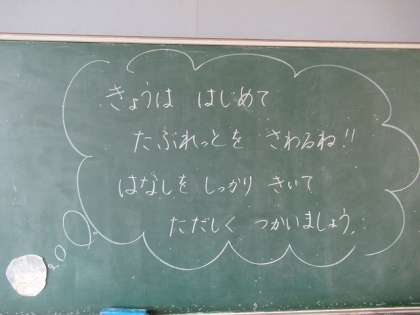 きょうは はじめて
たぶれっとを さわるね!!
はなしを しっかり きいて
ただしく つかいましょう。